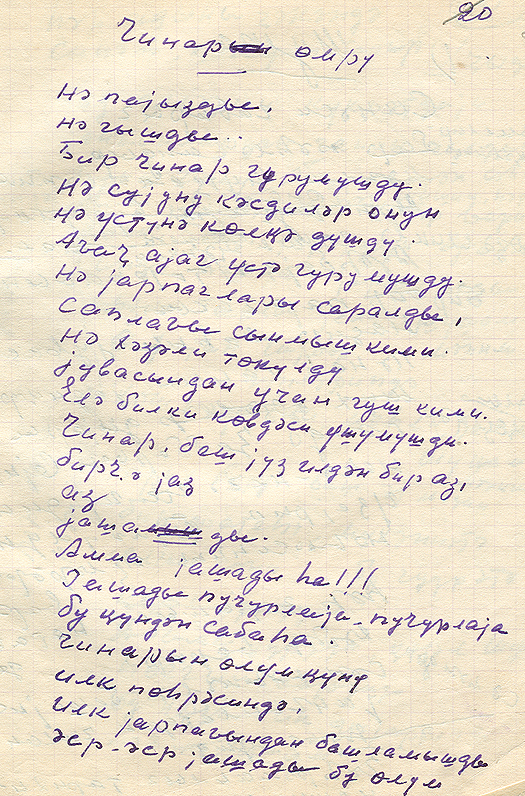 20
Чинар өмрү
Нә пајыздыр,
нә гышды..
Бир чинар гурумушду.
Нә сујуну кәсдиләр онун
нә үстүнә көлҝә дүшдү.
Ағаҹ ајаг үстә гурумушду.
Нә јарпаглары саралды,
саплағы сынмыш кими.
нә хәзәли төкүлдү
јувасындан учан гуш кими.
Елә билки көвдәси үшүмүшдү.
Чинар, беш јүз илдән бир аз,
бирҹә јаз
аз
јашады.
Амма јашады һа!!!
Јашады пучурлаја-пучурлаја
бу ҝүндән сабаһа.
Чинарын өлүм ҝүнү
илк пөһрәсиндә,
илк јарпағындан башламышды
әср-әср јашады бу өлүм